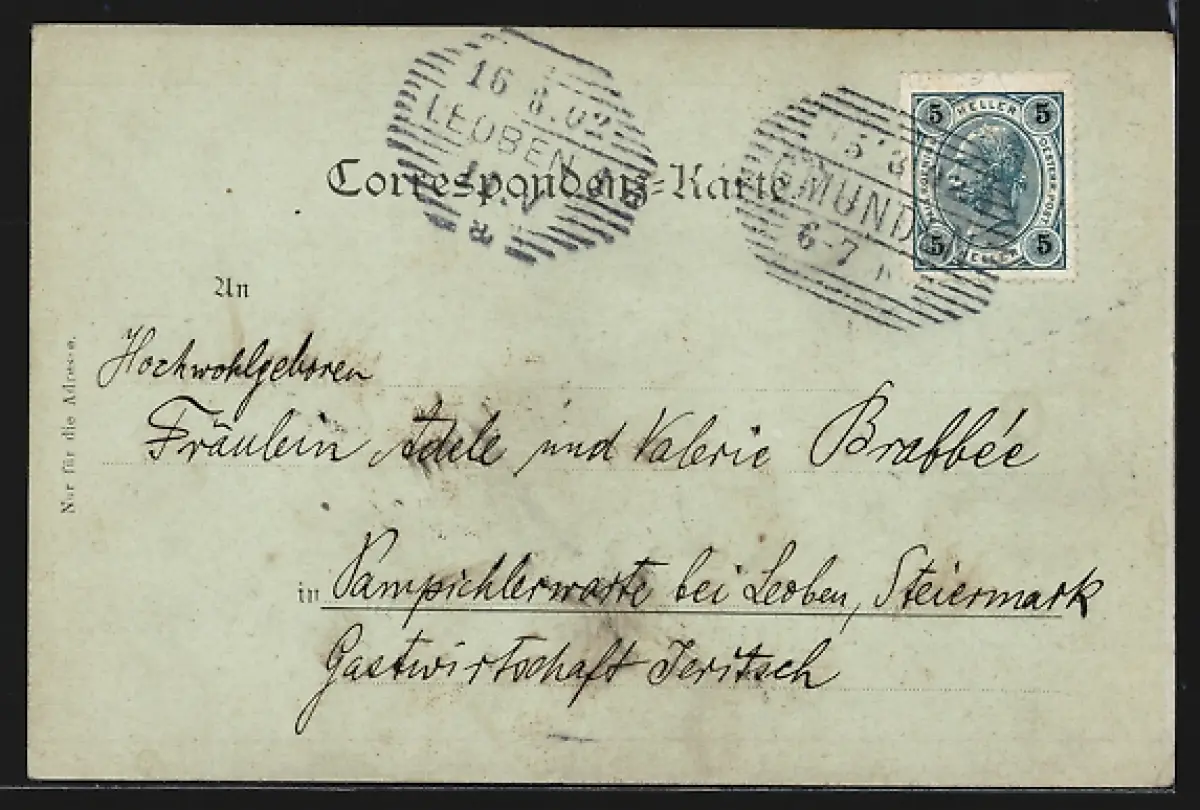 16 8.02
LEOBEN
a
Correspondenz-Karte
GMUND
6-7 N
5 HELLER 5
5 HELLER 5
An
Nur für die Adresse.
Hochwohlgeboren
Fräulein Adele und Valerie Brabbée
in Pampichlerwarte bei Leoben, Steiermark
Gastwirtschaft Jeritsch